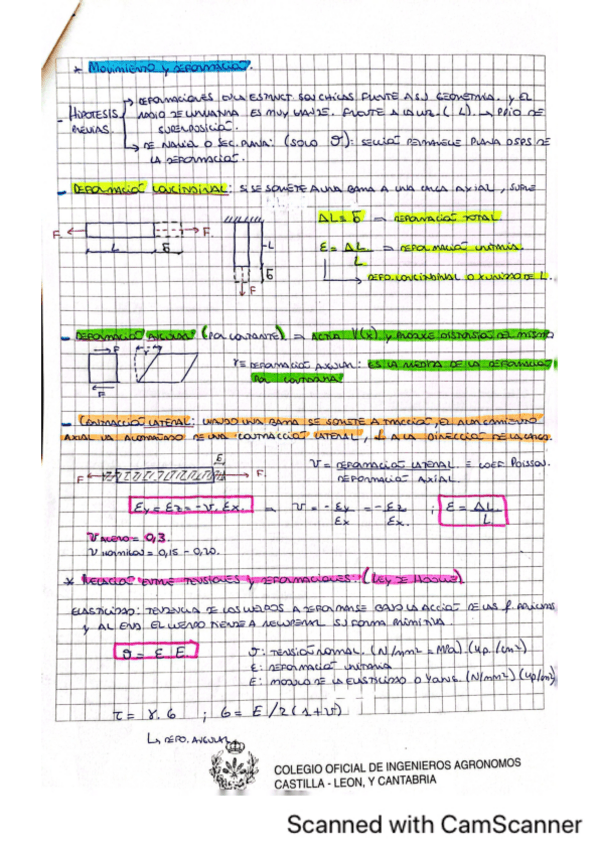 * Movimiento y deformación.
- HIPÓTESIS PREVIAS.
→ DEFORMACIONES EN LA ESTRUCT SON CHICAS FRENTE A SU GEOMETRÍA. Y EL
RADIO DE CURVATURA ES MUY GRANDE. FRENTE A LA LUZ. (L) → PPIO DE
SUPERPOSICIÓN.
→ DE NAVIER O SEC. PLANA: (SOLO σ): SECCIÓN PERMANECE PLANA DSPS DE
LA DEFORMACIÓN.
- DEFORMACIÓN LONGITUDINAL: SI SE SOMETE A UNA BARRA A UNA CARGA AXIAL, SUFRE
F ← → F
L δ
L
δ
F
ΔL = δ → DEFORMACIÓN TOTAL
ε = ΔL / L → DEFORMACIÓN UNITARIA.
→ DEFO. LONGITUDINAL O X UNIDAD DE L.
- DEFORMACIÓN ANGULAR (POR CORTANTE) → ACTÚA V(x) Y PRODUCE DISTORSIÓN DEL MISMO
F
γ
F
γ = DEFORMACIÓN ANGULAR: ES LA MEDIDA DE LA DEFORMACIÓN
POR CORTADURA
- CONTRACCIÓN LATERAL: CUANDO UNA BARRA SE SOMETE A TRACCIÓN, EL ALARGAMIENTO
AXIAL VA ACOMPAÑADO DE UNA CONTRACCIÓN LATERAL, ⊥ A LA DIRECCIÓN DE LA CARGA.
F ← → F.
ν = DEFORMACIÓN LATERAL / DEFORMACIÓN AXIAL. ≡ COEF POISSON.
εy = εz = -ν. εx. → ν = - εy / εx = - εz / εx. ; ε = ΔL / L
ν ACERO = 0,3.
ν HORMIGÓN = 0,15 - 0,20.
* RELACIÓN ENTRE TENSIONES Y DEFORMACIONES. (LEY DE HOOKE)
ELASTICIDAD: TENDENCIA DE LOS CUERPOS A DEFORMARSE BAJO LA ACCIÓN DE LAS f.
Y AL EL CUERPO TIENDE A RECUPERAR SU FORMA PRIMITIVA.
σ = ε E.
σ: TENSIÓN NORMAL. (N/mm² = MPa). (Kp./cm²)
ε: DEFORMACIÓN UNITARIA
E: MODULO DE LA ELASTICIDAD O YOUNG. (N/mm²) (Kp/cm²)
τ = γ. G ; G = E / 2(1+ν)
↳ DEFO. ANGULAR
COLEGIO OFICIAL DE INGENIEROS AGRONOMOS
CASTILLA - LEON, Y CANTABRIA
Scanned with CamScanner